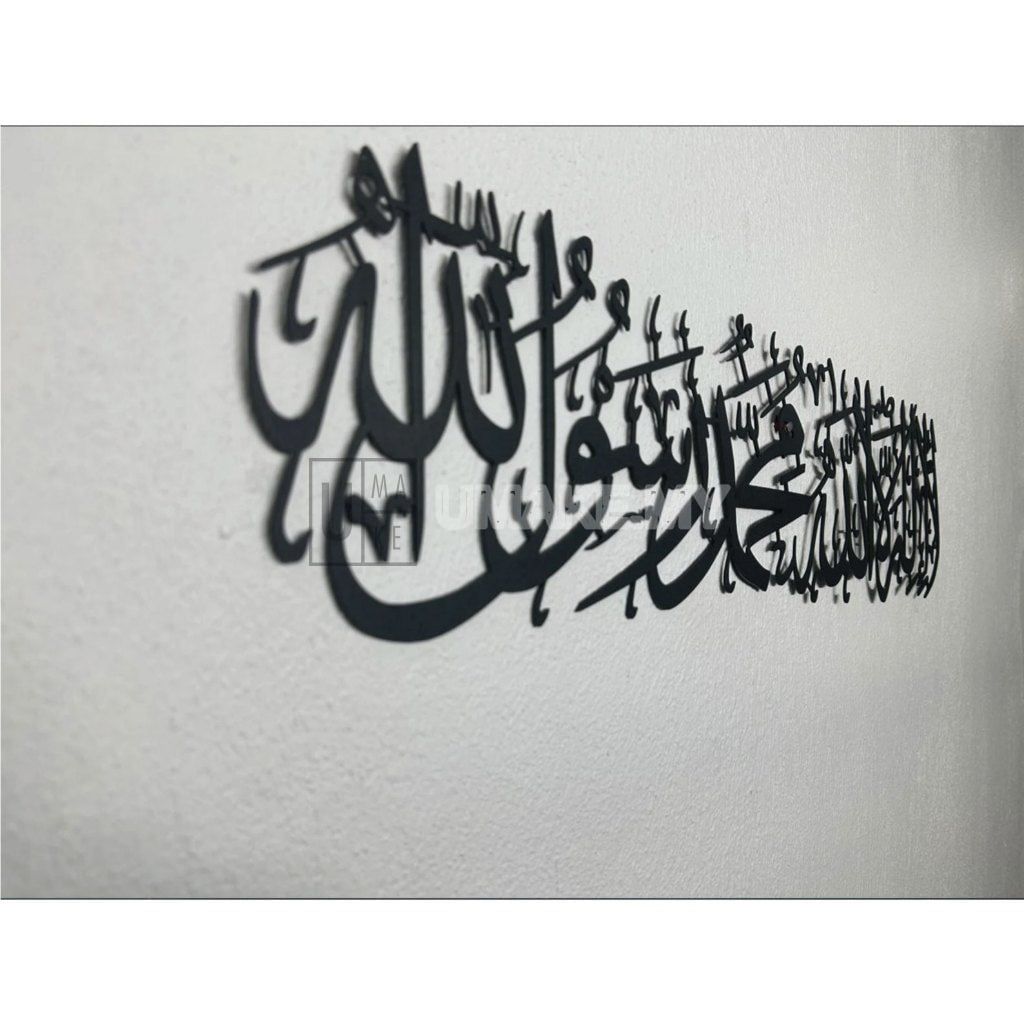 لا إله إلا الله محمد رسول الله
U MAKE UMAKEMY